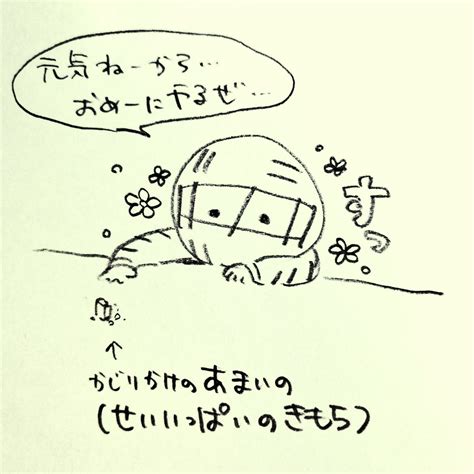 元気ねーから…
おめーにやるぜ…
すっ
↑
かじりかけのあまいの
(せいいっぱいのきもち)